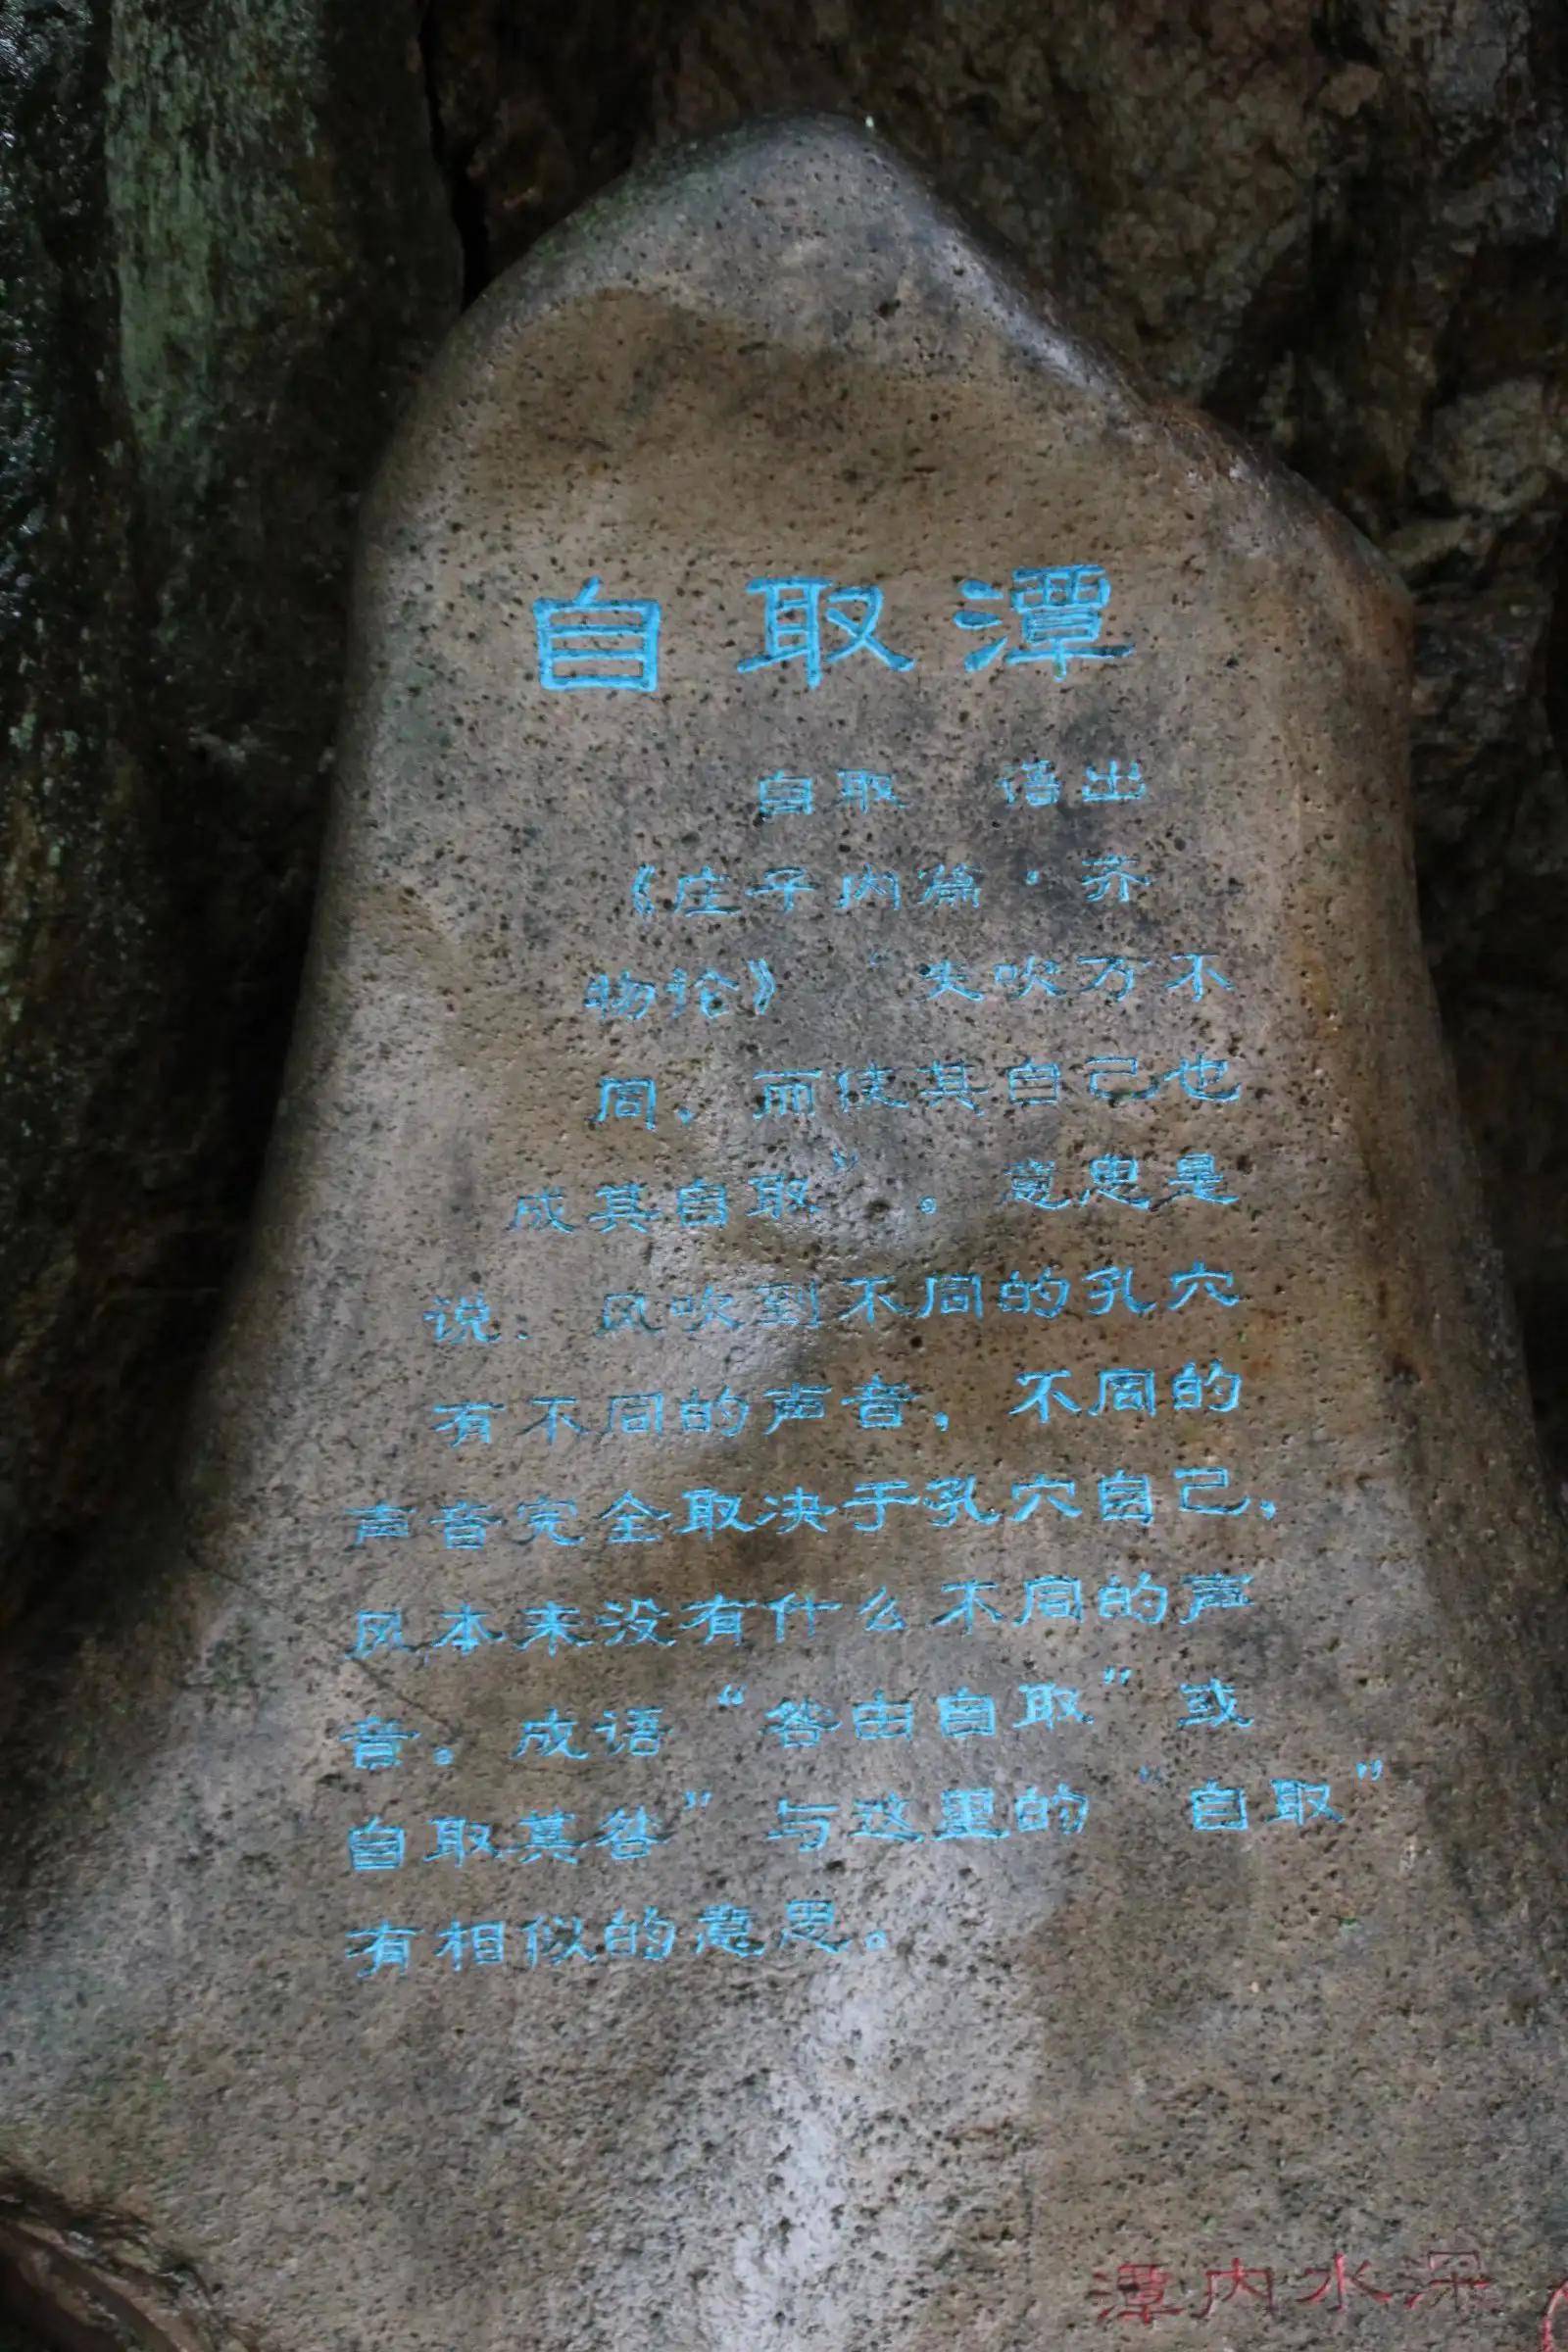 自取潭
自取 语出
《庄子内篇·齐
物论》“夫吹万不
同,而使其自己也
咸其自取”。意思是
说,风吹到不同的孔穴
有不同的声音,不同的
声音完全取决于孔穴自己,
风本来没有什么不同的声
音。成语“咎由自取”或
自取其咎”与这里的“自取”
有相似的意思。
潭内水深